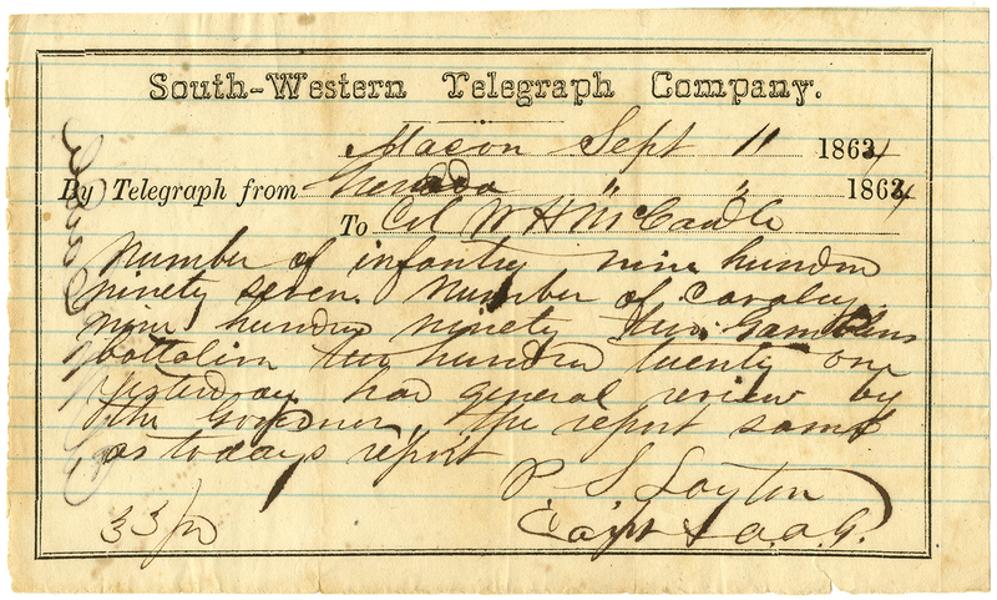 South-Western Telegraph Company.
Macon Sept 11 1864
By Telegraph from Grenada " " 1864
To Col W H McCardle
Number of infantry nine hundred
ninety seven. Number of cavalry
nine hundred ninety two. Gamblins
battalion two hundred twenty one
yesterday had general review by
the Governor, the report same
as todays report
P. S. Layton
Capt & a.a.G.
33/